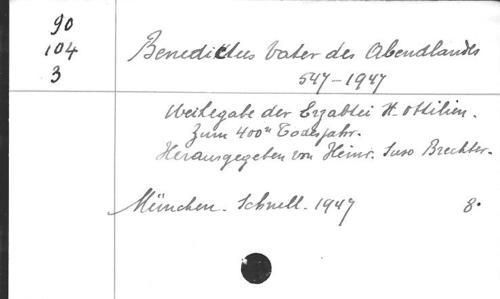 90
104
3
Benedictus Vater des Abendlandes
547-1947
Weihegabe der Erzabtei St. Ottilien.
Zum 400n Todesjahr.
Herausgegeben von Heinr. Suso Brechter.
München. Schnell. 1947 8.